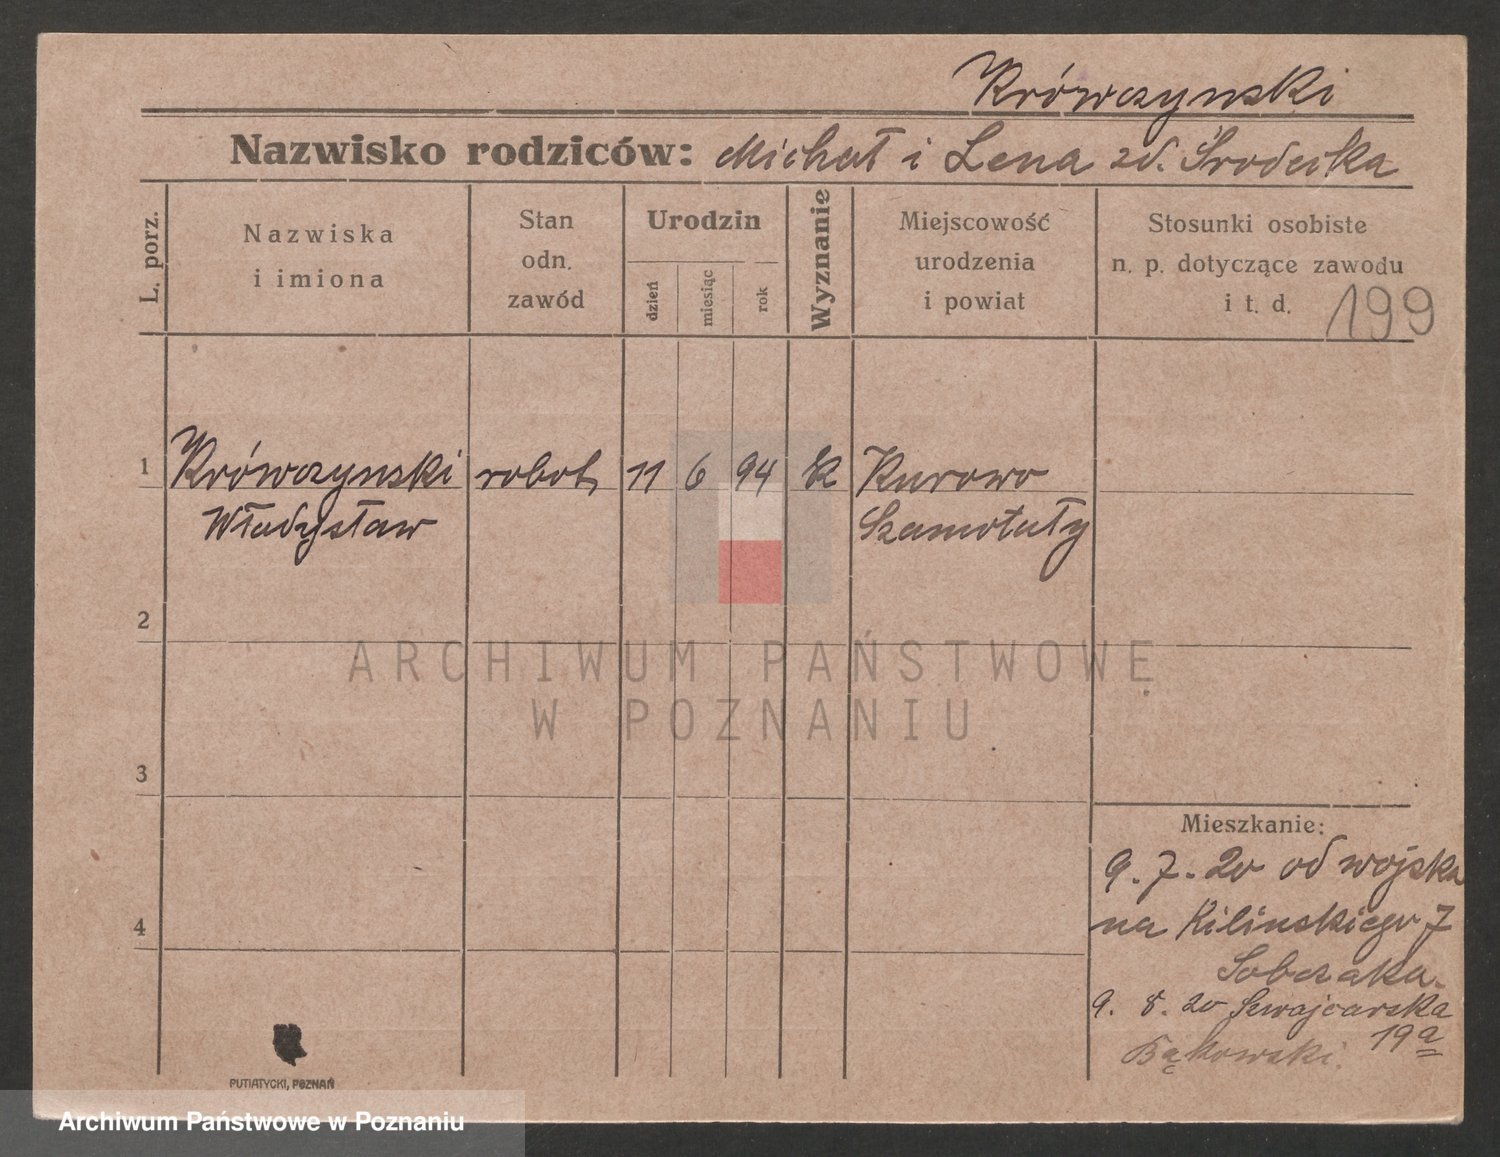 Krówczynski
Nazwisko rodziców: Michał i Lena zd. Środecka
L. porz.
Nazwiska
i imiona
Stan
odn.
zawód
Urodzin
dzień
miesiąc
rok
Wyznanie
Miejscowość
urodzenia
i powiat
Stosunki osobiste
n. p. dotyczące zawodu
i t. d.
199
1 Krówczynski robot. 11 6 94 k Kurowo
Władysław Szamotuły
2
ARCHIWUM PAŃSTWOWE
W POZNANIU
3
Mieszkanie:
9. 7. 20 od wojska
na Kilinskiego 7
Sobczaka.
9. 8. 20 Szwajcarska
19a
Bąkowski.
4
PUTIATYCKI, POZNAŃ
Archiwum Państwowe w Poznaniu